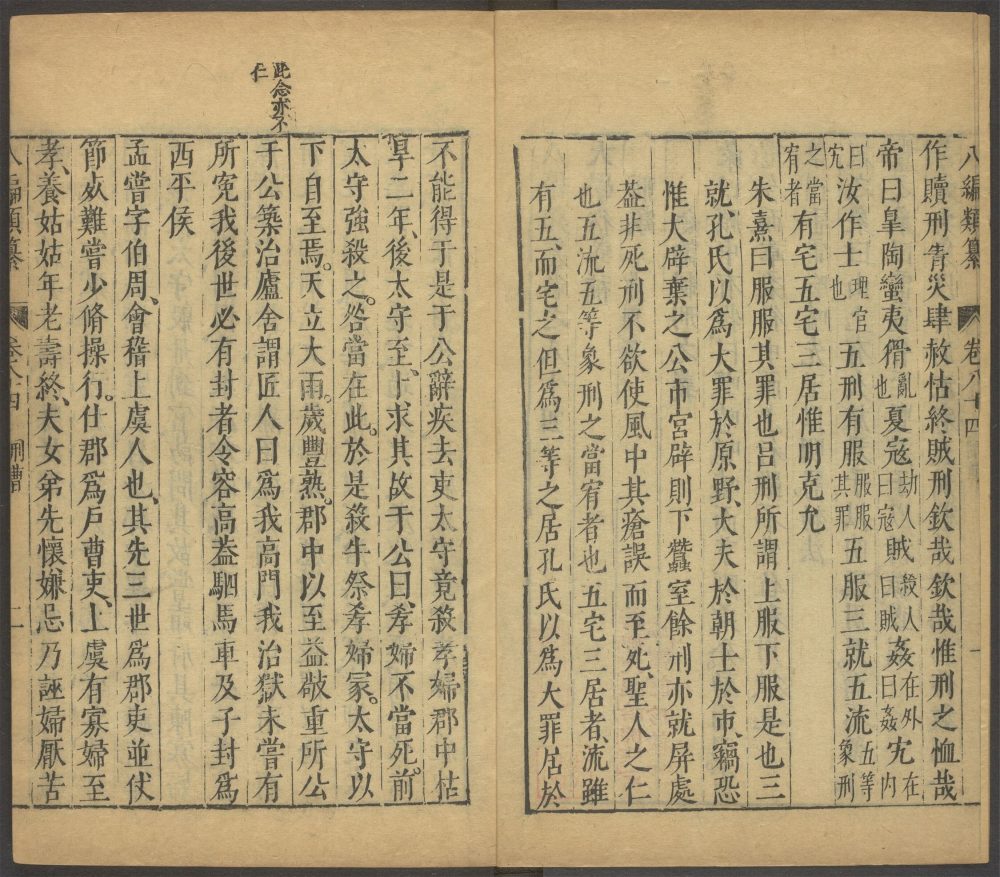 八編類纂 卷八十四 一
作贖刑眚災肆赦怙終賊刑欽哉欽哉惟刑之恤哉
帝曰皐陶蠻夷猾亂也夏寇劫人曰寇賊殺人曰賊姦在外曰姦宄在內
曰宄汝作士理官也五刑有服服服其罪五服三就五流五等象刑
之當宥者有宅五宅三居惟明克允
朱熹曰服服其罪也呂刑所謂上服下服是也三
就孔氏以爲大罪於原野大夫於朝士於市竊恐
惟大辟棄之公市宮辟則下蠶室餘刑亦就屏處
葢非死刑不欲使風中其瘡誤而至死聖人之仁
也五流五等象刑之當宥者也五宅三居者流雖
有五而宅之但爲三等之居孔氏以爲大罪居於
此念亦不
仁
不能得于是于公辭疾去吏太守竟殺孝婦郡中枯
旱二年後太守至卜求其故于公曰孝婦不當死前
太守強殺之咎當在此於是殺牛祭孝婦冢太守以
下自至焉天立大雨歲豐熟郡中以至益敬重所公
于公築治廬舍謂匠人曰爲我高門我治獄未嘗有
所寃我後世必有封者令容高葢駟馬車及子封爲
西平侯
孟嘗字伯周會稽上虞人也其先三世爲郡吏並伏
節死難嘗少脩操行仕郡爲戶曹吏上虞有寡婦至
孝養姑姑年老壽終夫女弟先懷嫌忌乃誣婦厭苦
八編類纂 卷八十四 刑曹 二